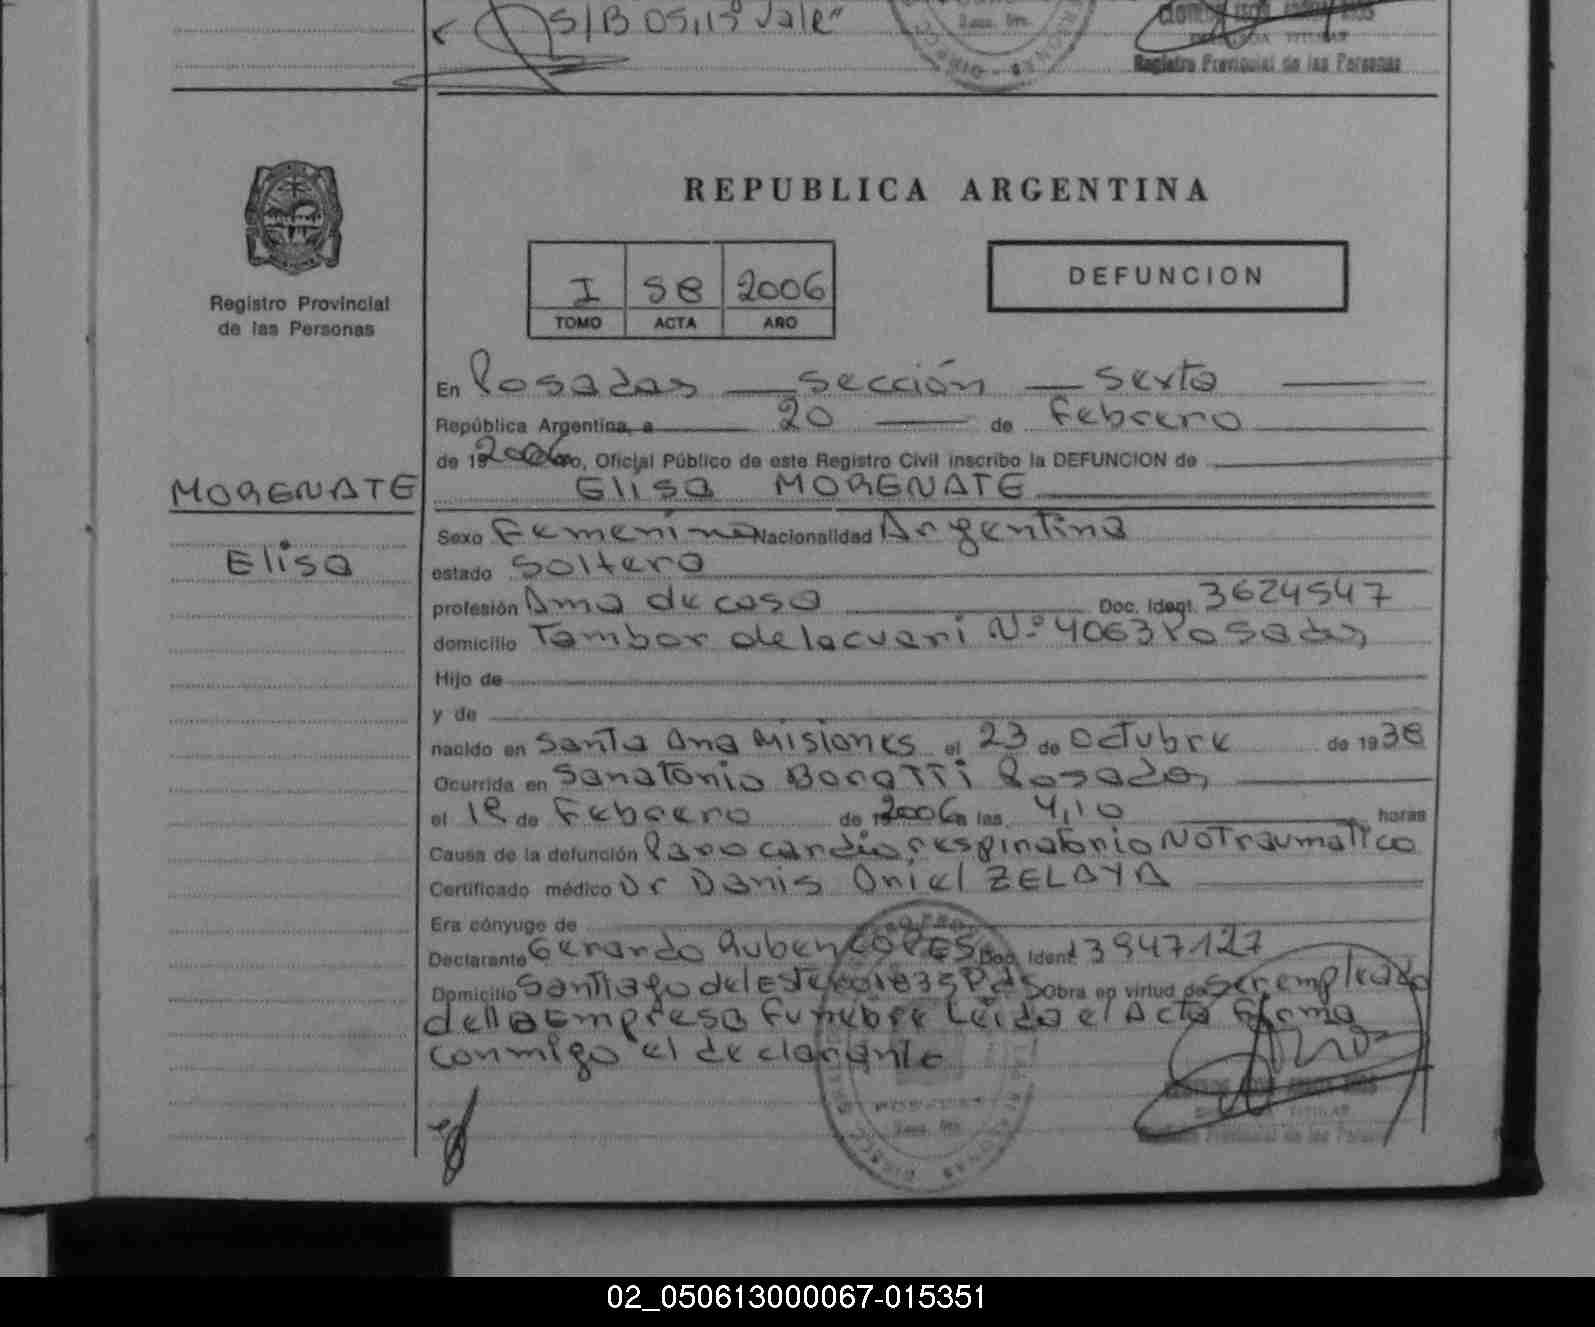 S/B 05,15 Vale"
Registro Provincial de las Personas
REPUBLICA ARGENTINA
Registro Provincial
de las Personas
I 58 2006
TOMO ACTA AÑO
DEFUNCION
En Posadas sección sexta
República Argentina, a 20 de Febrero
de 19 2006 yo, Oficial Público de este Registro Civil inscribo la DEFUNCION de
MORENATE
Elisa MORENATE
Elisa
Sexo Femenino Nacionalidad Argentina
estado Soltera
profesión Ama de casa Doc. Ident. 3624547
domicilio Tambor de lacuari Nº 4063 Posadas
Hijo de
y de
nacido en Santa Ana Misiones el 23 de Octubre de 1938
Ocurrida en Sanatorio Boratti Posadas
el 18 de Febrero de 19 2006 a las 4,10 horas
Causa de la defunción Paro cardio respiratorio No Traumatico
Certificado médico Dr Danis Oniel ZELAYA
Era cónyuge de
Declarante Gerardo Ruben LOPES Doc. Ident. 3947127
Domicilio Santiago del Estero 1835 Pdas Obra en virtud de Ser empleado
de la Empresa Funebre Leida el Acta Firma
conmigo el declarante
Registro Provincial de las Personas
02_050613000067-015351